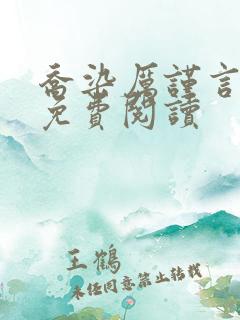 喬染厲謹言
免費閱讀
王鶴
未经同意禁止转载